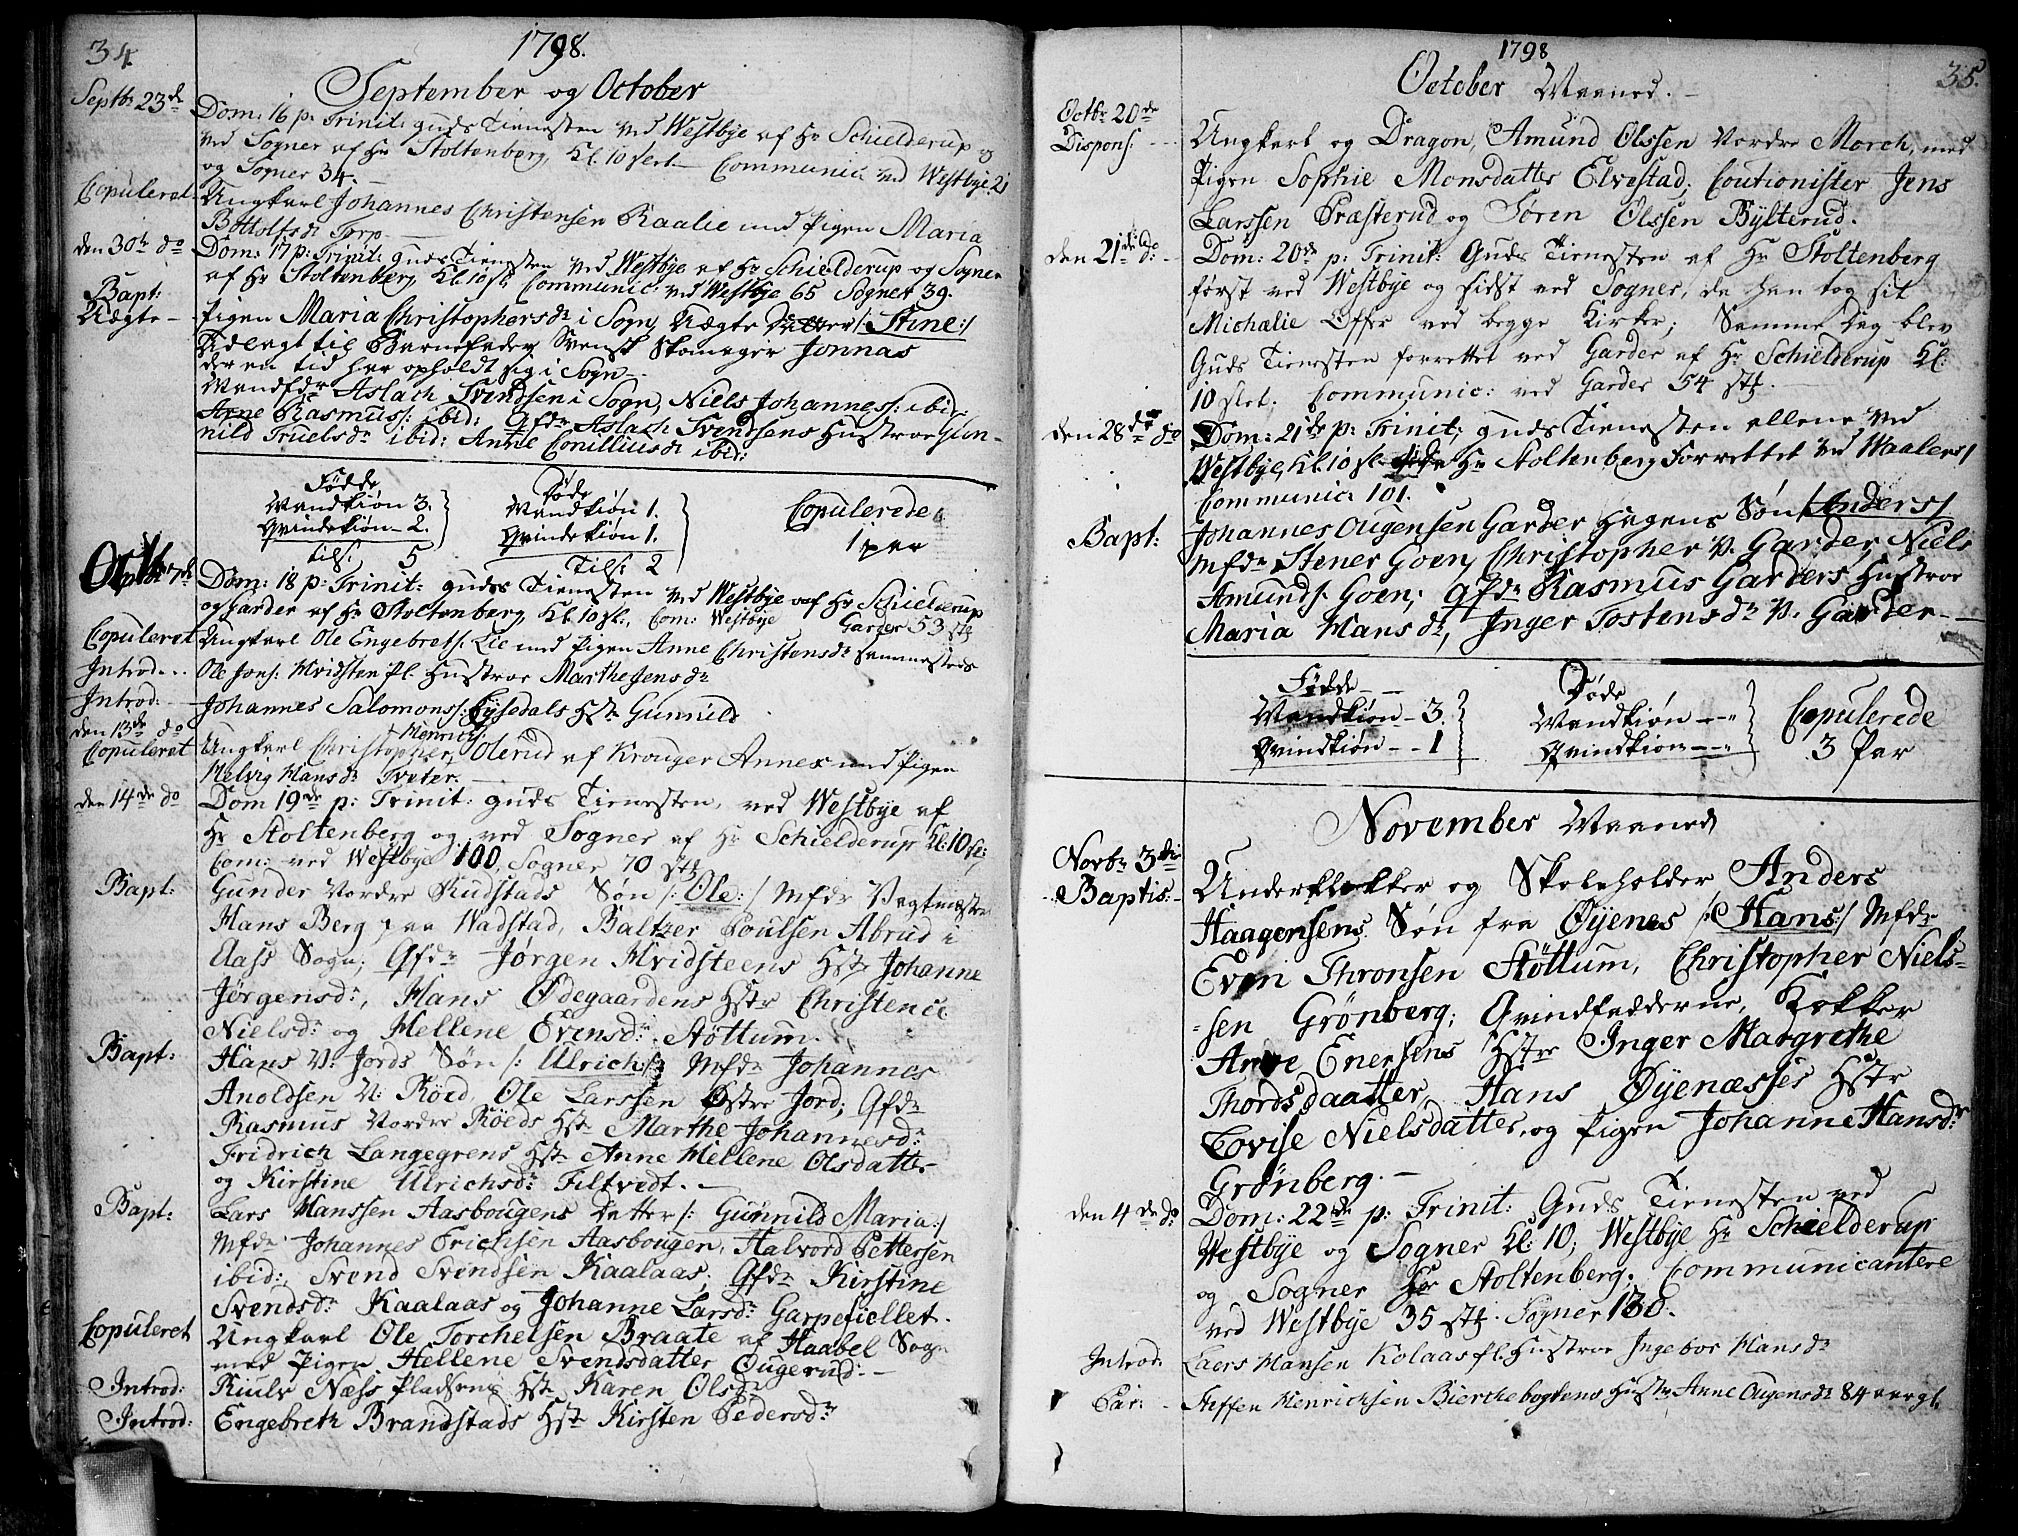 34
1798.
September og October
Septbr 23de Dom: 16 p: Trinit: Guds Tienesten ved Westbye af Hr Schielderup og
ved Sogner af Hr Stoltenberg, Kl. 10 slet. Communic: ved Westbye 21
og Sogner 34.
Copuleret Ungkarl Johannes Christensen Raalie med Pigen Maria
Bottolfsdr Torp.
den 30te do Dom: 17 p: Trinit: Guds Tienesten ved Westbye af Hr Schielderup og Sogner
af Hr Stoltenberg, Kl. 10 sl. Communic: ved Westbye 65 Sogner 39.
Bapt: Uægte Pigen Maria Christophersdr i Sogn, Uægte Datter /: Stine:/
Udlagt til Barnefader Svensk Skomager Jonnas
der en tid har opholdt sig i Sogn.
Mandfdr Aslach Svendsen i Sogn, Niels Johannes: ibid
Arne Rasmus: ibid: Qfdr Aslach Svendsens Hustroe Gun-
nild Truelsdr ibid: Antie Conilliusdr ibid:
Fødde Mandkiøn 3. Qvindekiøn 2. Tils: 5
Døde Mandkiøn 1. Qvindekiøn 1. Tils: 2
Copulerede 1 par
Octbr 7de Dom: 18 p: Trinit: Guds Tienesten ved Westbye af Hr Schielderup
og Garder af Hr Stoltenberg, Kl. 10 sl., Com: Westbye Garder 53 stk
Copuleret Ungkarl Ole Engebrets: Lie med Pigen Anne Christensdr sammesteds
Introd: Ole Jons: Hvidsten pl. Hustroe Marthe Jensdr
Introd: Johannes Salomons: Lysedals Hstr Gunnild
den 13de do Copuleret Ungkarl Christopher Henrics: Olerud af Kroger Annex med Pigen
Helvig Hansdr Tveter.
den 14de do Dom 19de p: Trinit: Guds Tienesten, ved Westbye af
Hr Stoltenberg og ved Sogner af Hr Schielderup Kl: 10 sl:
Com: ved Westbye 100, Sogner 70 stk
Bapt: Gunder Nordre Rudstads Søn /: Ole:/ Mfdr Vagtmester
Hans Berg paa Wadstad, Baltzer Poulsen Abrud i
Aass Sogn; Qfdr Jørgen Hvidsteens Hstr Johanne
Jørgensdr:, Hans Ødegaardens Hstr Christence
Nielsdr: og Hellene Evensdr: Støttum.
Bapt: Hans V: Jords Søn /: Ulrich:/ Mfdr Johannes
Anoldsen N: Röed, Ole Larssen Østre Jord; Qfdr
Rasmus Nordre Röeds Hstr Marthe Johannesdr:
Fridrich Langegrens Hstr Anne Hellene Olsdatter
og Kirstine Ulrichsdr: Filtvedt.
Bapt: Lars Hanssen Aasbougens Datter /: Gunnild Maria:/
Mfdr: Johannes Erichsen Aasbougen, Halvord Pettersen
ibid:, Svend Svendsen Kaalaas; Qfdr Kirstine
Svendsdr: Kaalaas og Johanne Larsdr: Garpefiellet.
Copuleret Ungkarl Ole Torchelsen Braate af Haabel Sogn
med Pigen Hellene Svendsdatter Ougerud:
Introd: Kiule Næss Pladsens Hstr Karen Olsdr
Introd: Engebreth Brandstads Hstr Kirsten Pedersdr
1798
35.
October Maaned.
Octbr 20de Dispens: Ungkarl og Dragon, Amund Olssen Nordre Morch, med
Pigen Sophie Monsdatter Elvestad; Coutionister Jens
Larssen Præsterud og Søren Olssen Bylterud.
den 21de do: Dom: 20de p: Trinit: Guds Tienesten af Hr Stoltenberg
først ved Westbye og sidst ved Sogner, da han tog sit
Michalie Offer ved begge Kirker; Samme Dag blev
Guds Tienesten forrettet ved Garder af Hr Schielderup Kl:
10 slet. Communic: ved Garder 54 stk.
den 28de do Dom: 21de p: Trinit: Guds Tienesten allene ved
Westbye, Kl. 10 sl. Hr Stoltenberg Forrettet ved Waaler /
Communic: 101.
Bapt: Johannes Ougensen Garder Hagens Søn /Anders/
Mfdr Stener Goen, Christopher N. Garder, Niels
Amunds: Goen; Qfdr Rasmus Garders Hustroe
Maria Hansdr, Inger Tostensdr N. Garder
Fødde Mandkiøn 3. Qvindkiøn 1
Døde Mandkiøn " Qvindkiøn "
Copulerede 3 Par
November Maaned
Novbr 3die Baptis: Underklokker og Skoleholder Anders
Haagensens Søn fra Øyenes /: Hans:/ Mfdr
Even Thronsen Støttum, Christopher Niels-
-sen Grönberg; Qvindfadderne, Klokker
Arne Enersens Hstr Inger Margrethe
Thordsdaatter, Hans Øyenæsses Hstr
Lovise Nielsdatter, og Pigen Johanne Hansdr
Grönberg.
den 4de do: Dom: 22de p: Trinit: Guds Tienesten ved
Westbye og Sogner Kl: 10, Westbye Hr Schielderup
og Sogner Hr Stoltenberg. Communicantere
ved Westbye 35 stk. Sogner 130.
Introd: Laers Hansen Kolaas pl. Hustroe Ingebor Hansdr
Par: Steffen Henrichsen Bierchebogtens Hustr Anne Ougensdr 84 aar gl.